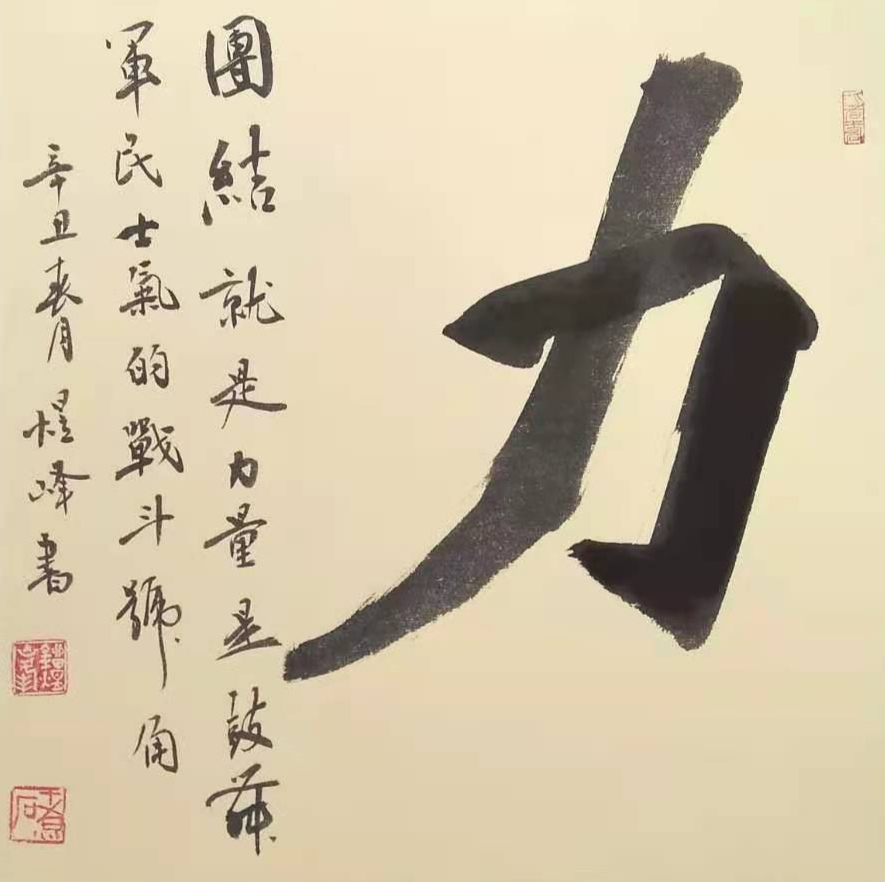 力
團結就是力量是鼓舞
軍民士氣的戰斗號角
辛丑春月煜峰書